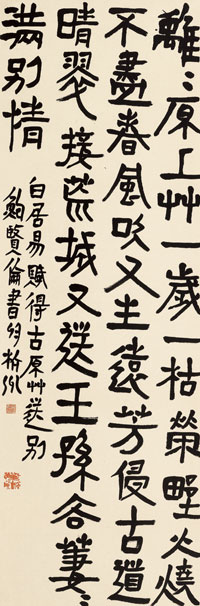 離〻原上艸一歲一枯榮野火燒
不盡春風吹又生遠芳侵古道
晴翠接荒城又送王孫去萋〻
滿別情
白居易賦得古原艸送別
鮑賢倫書於杭州